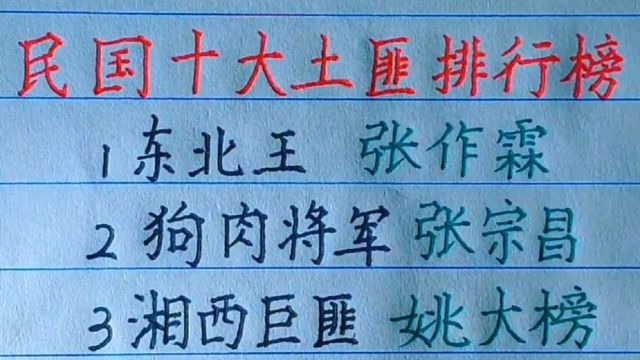 民国十大土匪排行榜
1东北王 张作霖
2狗肉将军 张宗昌
3湘西巨匪 姚大榜